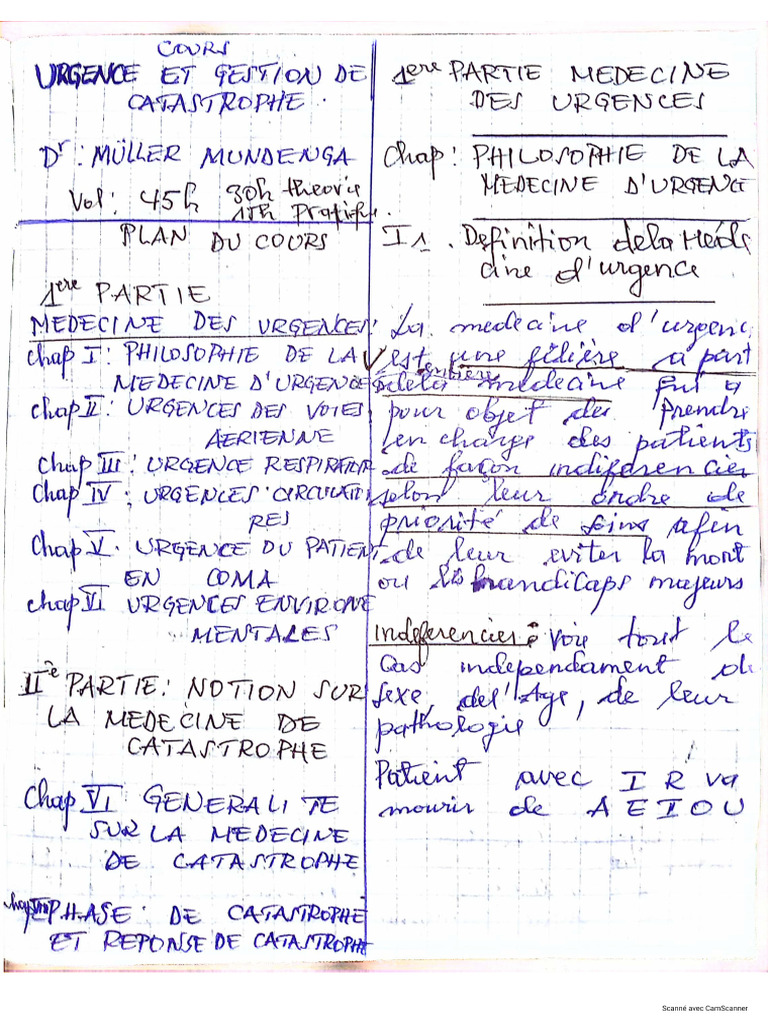 COURS
URGENCE ET GESTION DE
CATASTROPHE.
Dr : MÜLLER MUNDENGA
Vol : 45h 30h theorie
15h Pratique.
PLAN DU COURS
1ere PARTIE
MEDECINE DES URGENCES:
Chap I : PHILOSOPHIE DE LA
MEDECINE D'URGENCE
Chap II : URGENCES DES VOIES
AERIENNE
Chap III : URGENCE RESPIRATOIR
Chap IV : URGENCES CIRCULATOI
RES
Chap V. URGENCE DU PATIENT
EN COMA
Chap VI URGENCES ENVIRONE
MENTALES
IIe PARTIE : NOTION SUR
LA MEDECINE DE
CATASTROPHE
Chap VI GENERALITE
SUR LA MEDECINE
DE CATASTROPHE
PHASE : DE CATASTROPHE
ET REPONSE DE CATASTROPHE
1ere PARTIE MEDECINE
DES URGENCES
Chap : PHILOSOPHIE DE LA
MEDECINE D'URGENCE
I1. Definition dela Méde
cine d'urgence
La medecine d'urgenc
est une filière a part
entière
dela medecine qui a
pour objet des Prendre
en charge des patients
de façon indiferencier
selon leur ordre de
priorité de soins afin
de leur eviter la mort
ou les handicaps majeurs
Indeferencier : voie tout le
Cas independament de
sexe, del'Age, de leur
pathologie
Patient avec I R va
mourir de A E I O U
Scanné avec CamScanner